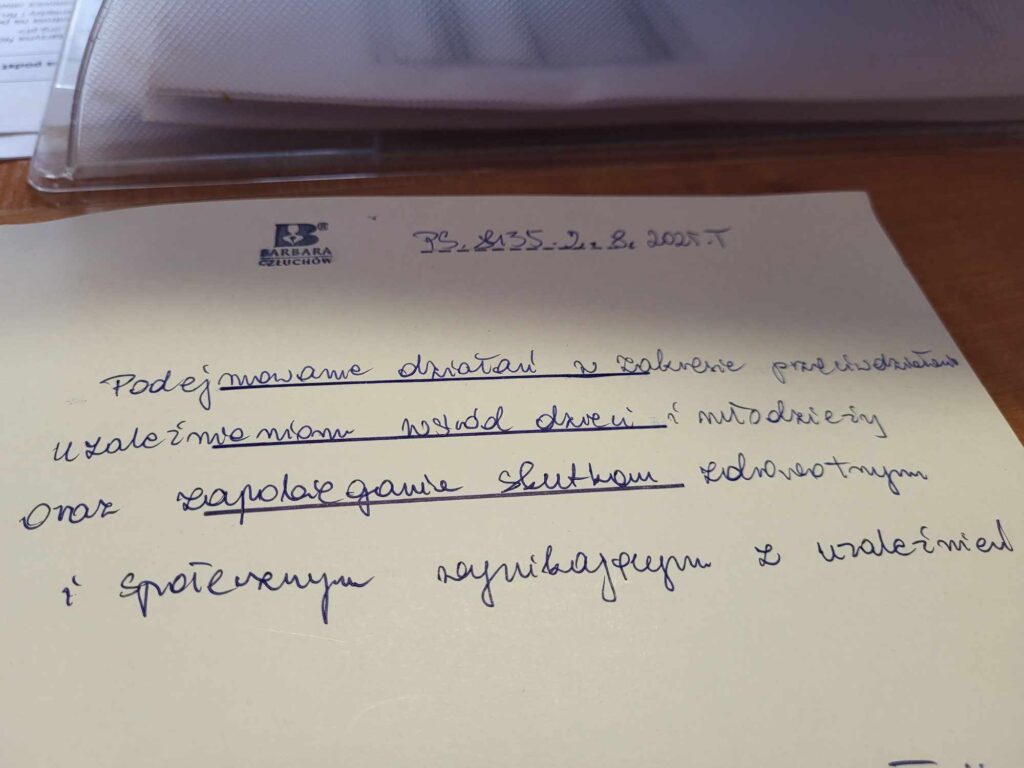 BARBARA
CZŁUCHÓW
PS. 8135.2.8.2025.T
Podejmowanie działań w zakresie przeciwdziałania
uzależnieniom wśród dzieci i młodzieży
oraz zapobieganie skutkom zdrowotnym
i społecznym wynikającym z uzależnień